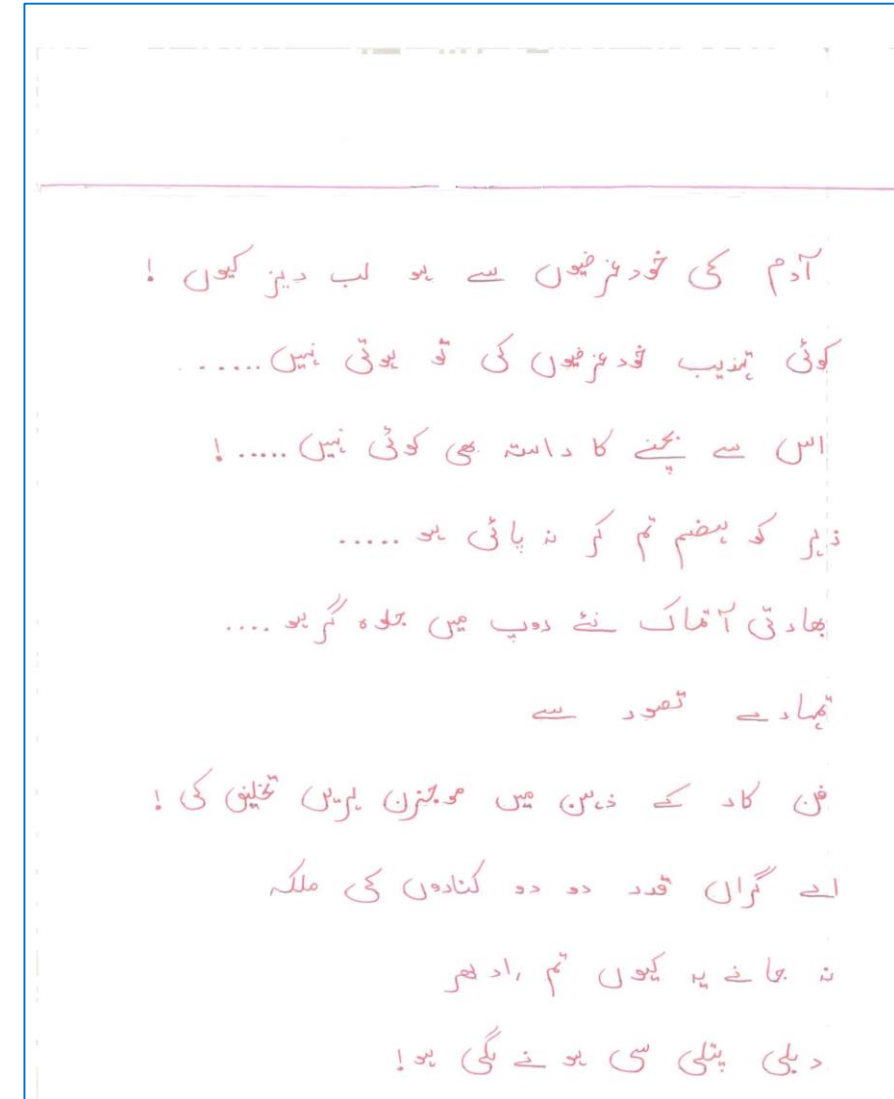 آدم کی خودغرضیوں سے ہو لب ریز کیوں !
کوئی تہذیب خودغرضیوں کی تو ہوتی نہیں.....
اس سے بچنے کا راستہ بھی کوئی نہیں.....!
زہر کو ہضم تم کر نہ پائی ہو.....
بھارتی آتماک نئے روپ میں جلوہ گر ہو....
تمہارے تصور سے
فن کار کے ذہن میں موجزن لہریں تخلیق کی !
اے گراں قدر دو دو کناروں کی ملکہ
نہ جانے یہ کیوں تم ادھر
دبلی پتلی سی ہونے لگی ہو!